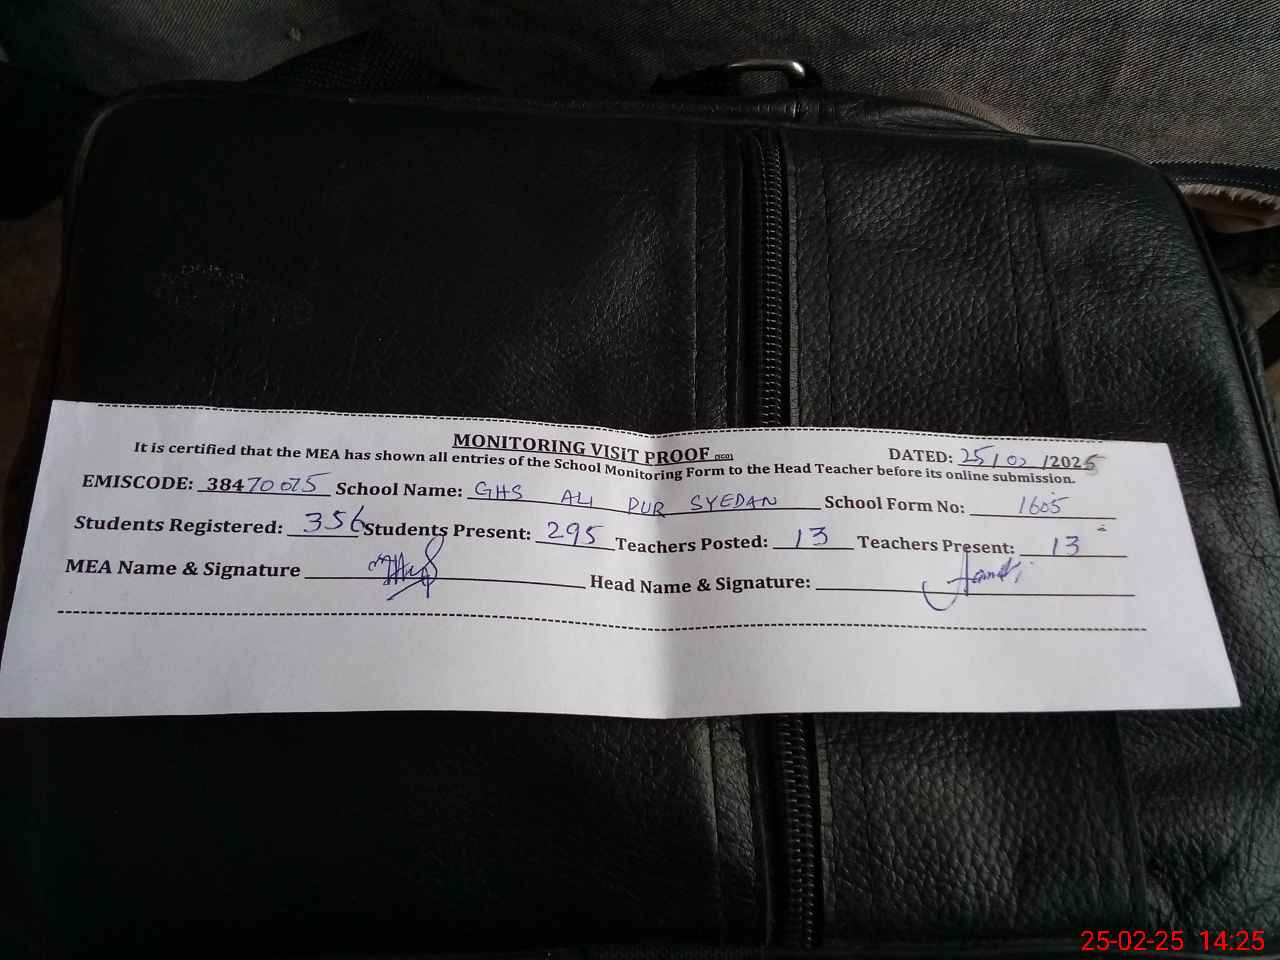 MONITORING VISIT PROOF
DATED: 25/02/2025
It is certified that the MEA has shown all entries of the School Monitoring Form to the Head Teacher before its online submission.
EMISCODE: 38470075 School Name: GHS ALI PUR SYEDAN School Form No: 1605
Students Registered: 356 Students Present: 295 Teachers Posted: 13 Teachers Present: 13
MEA Name & Signature Head Name & Signature:
25-02-25 14:25